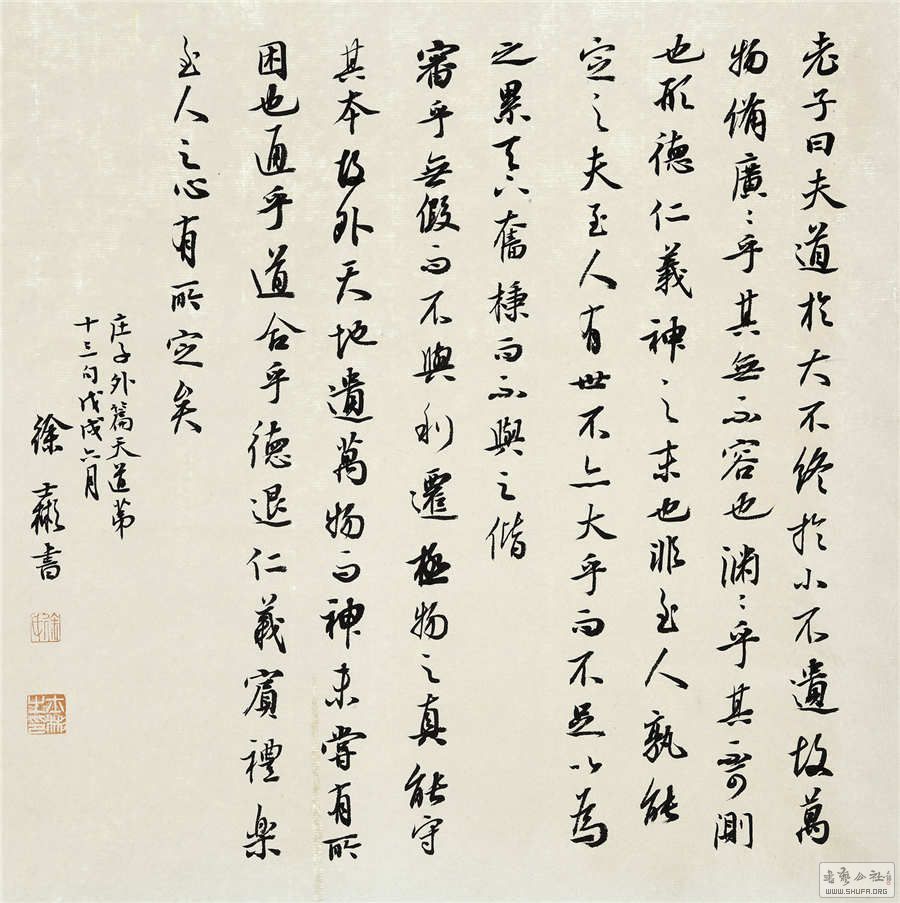 老子曰夫道於大不終於小不遺故萬
物備廣〻乎其無不容也淵〻乎其不可測
也形德仁義神之末也非至人孰能
定之夫至人有世不亦大乎而不足以為
之累天下奮棅而不與之偕
審乎無假而不與利遷極物之真能守
其本故外天地遺萬物而神未嘗有所
困也通乎道合乎德退仁義賓禮楽
至人之心有所定矣
庄子外篇天道第
十三句戊戌六月
徐士彬書
書藝公社
WWW.SHUFA.ORG